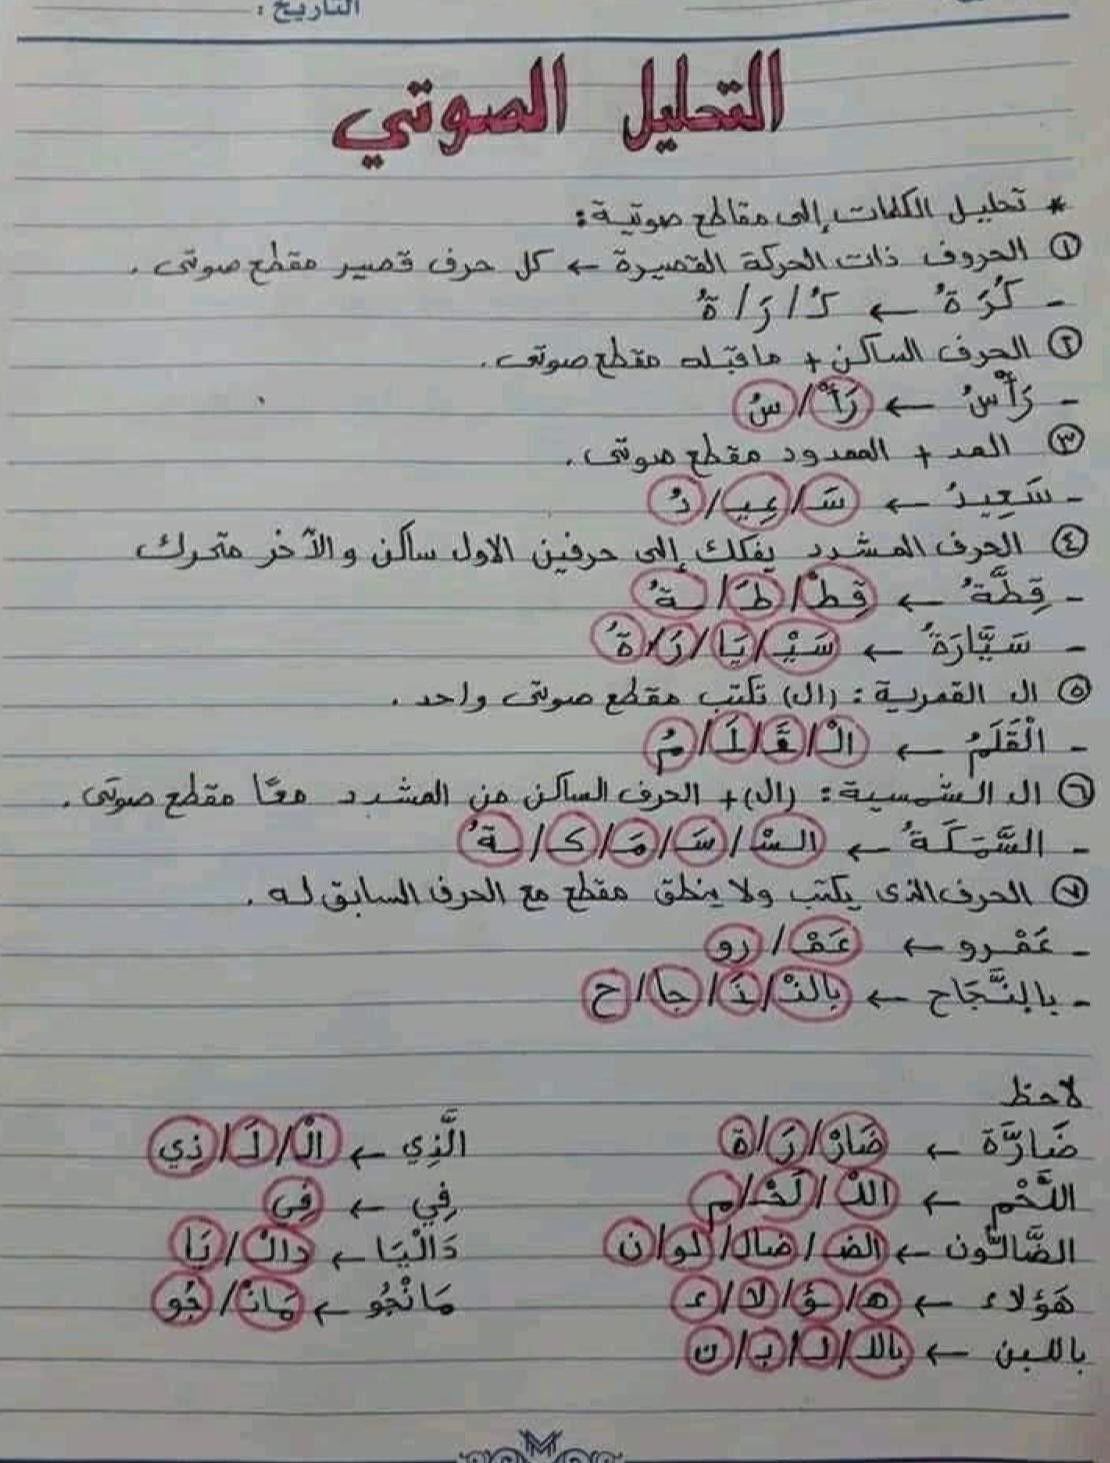 التاريخ :
التحليل الصوتي
* تحليل الكلمات إلى مقاطع صوتية :
① الحروف ذات الحركة القصيرة ← كل حرف قصير مقطع صوتى .
- كُرَةُ ← كُ / رَ / ةُ
② الحرف الساكن + ماقبله مقطع صوتى .
- رَأْسُ ← رَأْ / سُ
③ المد + الممدود مقطع صوتى .
- سَعِيدُ ← سَ / عِيـ / دُ
④ الحرف المشدد يفكك إلى حرفين الاول ساكن والآخر متحرك
- قِطَّةُ ← قِطْ / طَـ / ـةُ
- سَيَّارَةُ ← سَيْـ / يَا / رَ / ةُ
⑤ ال القمرية : (ال) تكتب مقطع صوتى واحد .
- الْقَلَمُ ← الْـ / قَـ / لَـ / مُ
⑥ ال الشمسية : (ال) + الحرف الساكن من المشدد معًا مقطع صوتى .
- السَّمَكَةُ ← السْـ / سَـ / مَـ / كَـ / ـةُ
⑦ الحرف الذى يكتب ولا ينطق مقطع مع الحرف السابق له .
- عَمْرو ← عَمْـ / رو
- بالنَّجَاح ← بالنْـ / نَـ / جا / ح
لاحظ
ضَارَّة ← ضَارْ / رَ / ة الَّذِي ← الْـ / لَـ / ذِي
اللَّحْم ← اللْـ / لَحْـ / م فِي ← فِي
الضَّالُّون ← الضـ / ضال / لو / ن دَالْيَا ← دالْـ / يَا
هَؤُلاء ← هـ / ؤُ / لا / ء مَانْجُو ← مَانْـ / جُو
باللبن ← باللـ / لـ / بـ / ن